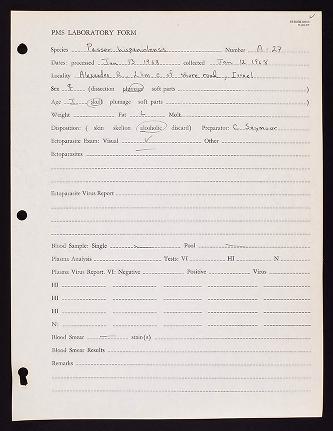 PMS LABORATORY FORM
Species Passer hispaniolensis Number A-27
Dates: processed Jan 13 1968 collected Jan 12 1968
Locality Alexander R., 1 km. e. of shore road, Israel
Sex ♀ (dissection plumage soft parts )
Age I (skull plumage soft parts )
Weight Fat L Molt
Disposition: ( skin skeleton alcoholic discard) Preparator: C. Seymour
Ectoparasite Exam: Visual ✓ Other
Ectoparasites —
Ectoparasite Virus Report
Blood Sample: Single — Pool —
Plasma Analysis Tests: VI HI N
Plasma Virus Report. VI: Negative Positive Virus
HI
HI
HI
N:
Blood Smear — stain(s)
Blood Smear Results
Remarks